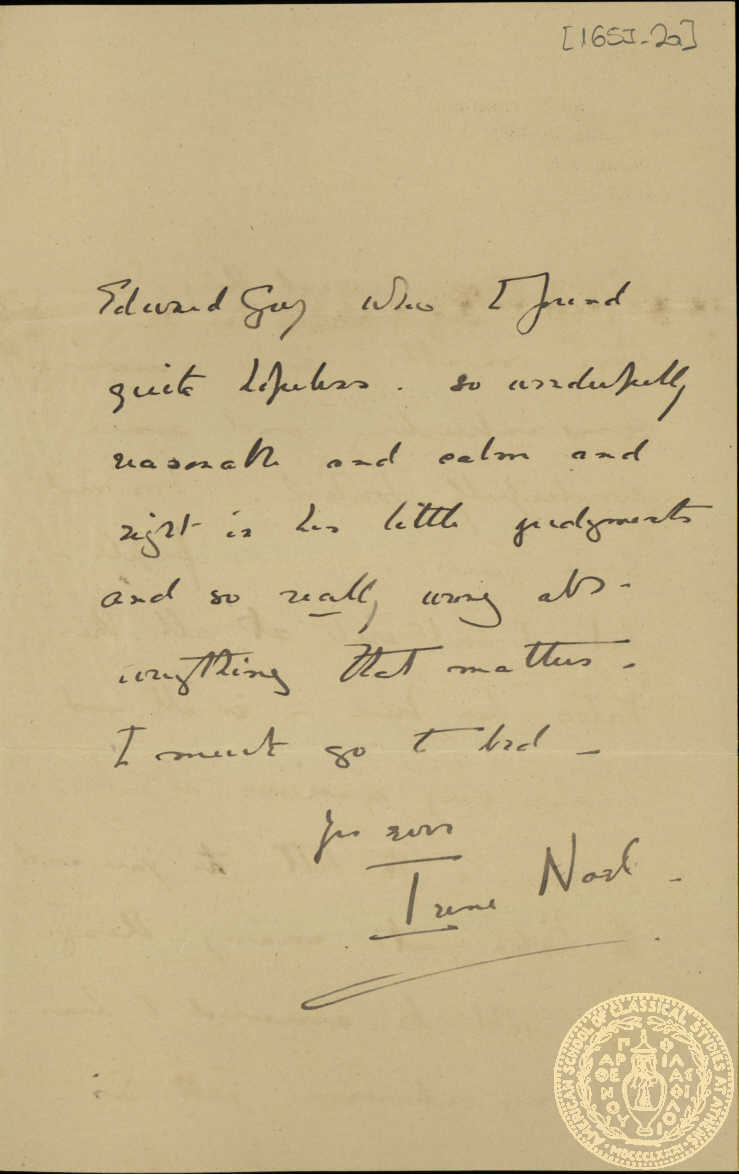 [165I-2a]
Edward Grey who I found
quite hopeless. so wonderfully
reasonable and calm and
right in his little judgments
and so really wrong abt-
everything that matters -
I must go to bed -
Yrs
Irene Noel -
AMERICAN SCHOOL OF CLASSICAL STUDIES AT ATHENS
MDCCCLXXXI
ΠΑΡΘΕΝΟΥ ΦΙΛΑΣ ΦΙΛΟΙ